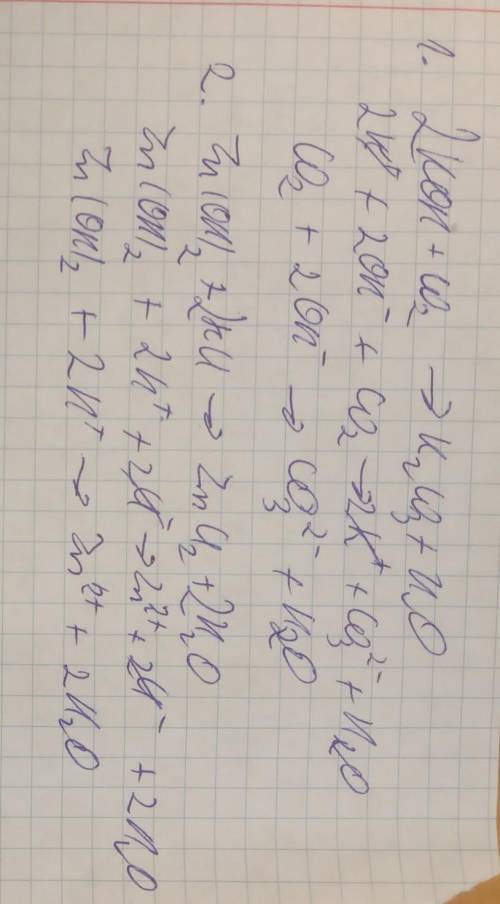 1. 2KOH + CO₂ → K₂CO₃ + H₂O
2K⁺ + 2OH⁻ + CO₂ → 2K⁺ + CO₃²⁻ + H₂O
CO₂ + 2OH⁻ → CO₃²⁻ + H₂O
2. Zn(OH)₂ + 2HCl → ZnCl₂ + 2H₂O
Zn(OH)₂ + 2H⁺ + 2Cl⁻ → Zn²⁺ + 2Cl⁻ + 2H₂O
Zn(OH)₂ + 2H⁺ → Zn²⁺ + 2H₂O